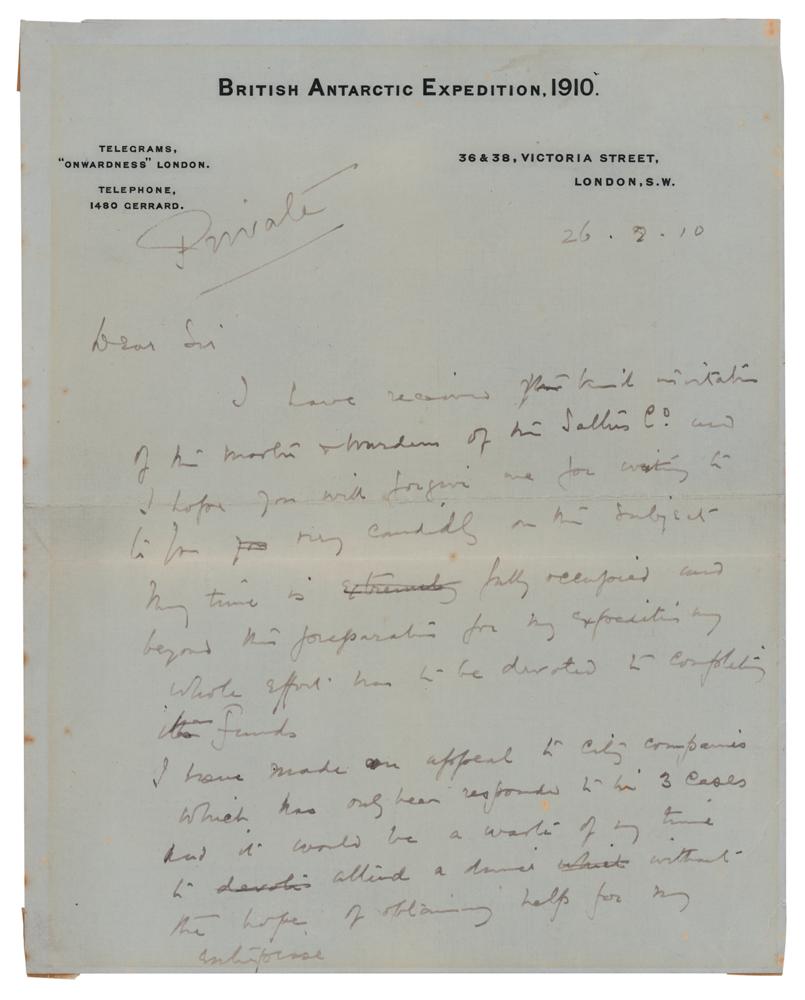 BRITISH ANTARCTIC EXPEDITION, 1910.
TELEGRAMS,
"ONWARDNESS" LONDON.
TELEPHONE,
1480 GERRARD.
36 & 38, VICTORIA STREET,
LONDON, S.W.
Private
26 . 2 . 10
Dear Sir
I have received kind invitation
of the Master & Wardens of the Salters Co and
I hope you will forgive me for writing to
to you very candidly on the subject
My time is extremely fully occupied and
beyond the preparation for my expedition my
whole effort has to be devoted to completing
Funds
I have made an appeal to city companies
which has only been responded to in 3 cases
and it would be a waste of my time
to devote attend a dinner which without
the hope of obtaining help for my
enterprise